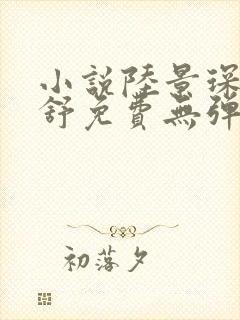 小說陸景琛
舒免費無彈
初落夕